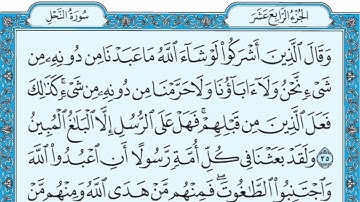 الجزء الرابع عشر
سورة النحل
وَقَالَ الَّذِينَ أَشْرَكُوا لَوْ شَاءَ اللَّهُ مَا عَبَدْنَا مِن دُونِهِ مِن
شَيْءٍ نَّحْنُ وَلَا آبَاؤُنَا وَلَا حَرَّمْنَا مِن دُونِهِ مِن شَيْءٍ ۚ كَذَٰلِكَ
فَعَلَ الَّذِينَ مِن قَبْلِهِمْ ۚ فَهَلْ عَلَى الرُّسُلِ إِلَّا الْبَلَاغُ الْمُبِينُ
٣٥ وَلَقَدْ بَعَثْنَا فِي كُلِّ أُمَّةٍ رَّسُولًا أَنِ اعْبُدُوا اللَّهَ
وَاجْتَنِبُوا الطَّاغُوتَ ۖ فَمِنْهُم مَّنْ هَدَى اللَّهُ وَمِنْهُم مَّنْ